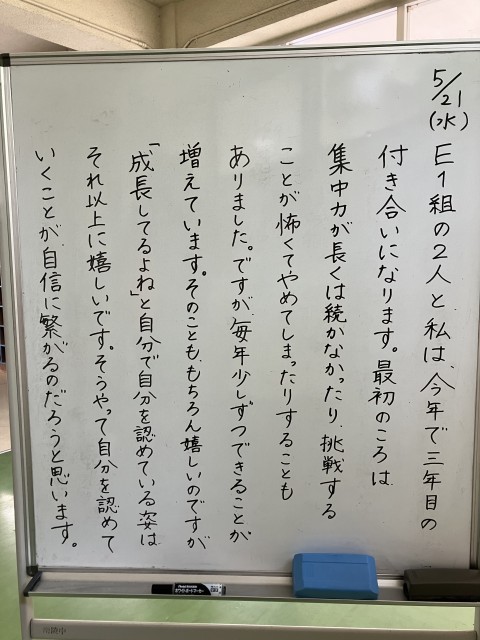 5/21
(水)
E1組の2人と私は、今年で三年目の
付き合いになります。最初のころは
集中力が長くは続かなかったり、挑戦する
ことが怖くてやめてしまったりすることも
ありました。ですが、毎年少しずつできることが、
増えています。そのことも、もちろん嬉しいのですが
「成長してるよね」と自分で自分を認めている姿は
それ以上に嬉しいです。そうやって自分を認めて
いくことが、自信に繋がるのだろうと思います。
ホワイトボードマーカー